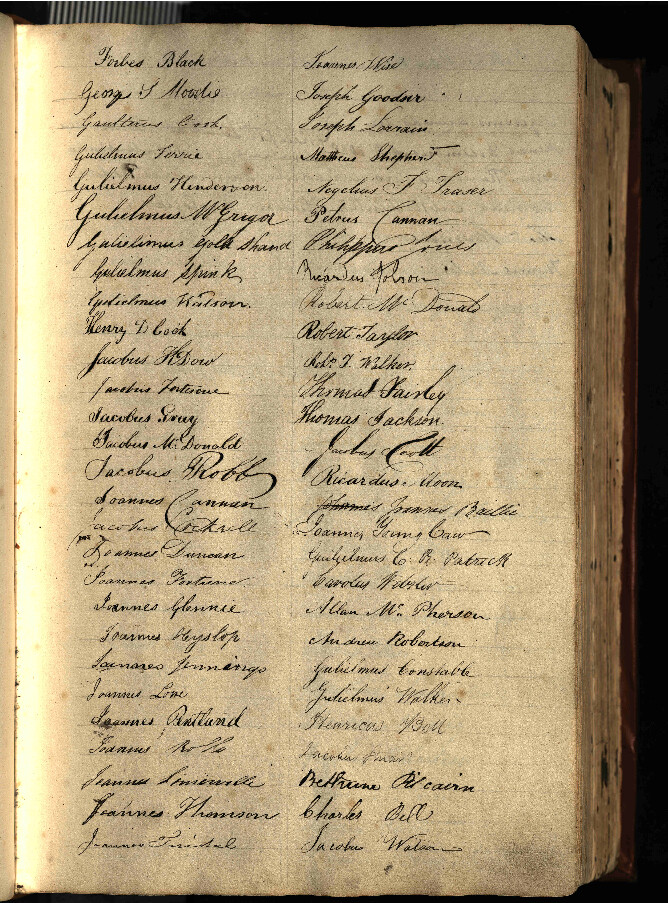 Forbes Black
George S Moodie
Gualterus Cook.
Gulielmus Ferrie
Gulielmus Henderson
Gulielmus McGrigor
Gulielmus Gold Shand
Gulielmus Spink
Gulielmus Watson.
Henry D Cook
Jacobus H. Dow
Jacobus Fortescue
Jacobus Gray
Jacobus McDonald
Jacobus Robb
Joannes Cannan
Jacobus Cockrell
Joannes Duncan
Joannes Fortune
Joannes Glennie
Joannes Hyslop
Joannes Jennings
Joannes Love
Joannes Pentland
Joannes Rolls
Joannes Somerville
Joannes Thomson
Joannes
Joannes Wise
Joseph Goodsir
Joseph Lorrain
Mattheus Shepherd
F Fraser
Petrus Cannan
Philippus Jones
Ricardus
Robert Mc Donald
Robert Taylor
Robt. T. Walker.
Thomas Fairley
Thomas Jackson
Jacobus Scott
Ricardus Moon
Joannes Baillie
Joannes Young Caw
Gulielmus C. R. Patrick
Carolus Webster
Allan Mc. Pherson
Andrew Robertson
Gulielmus Constable
Gulielmus Walker
Henricus Bell
Jacobus
Bethune Pitcairn
Charles Bell
Jacobus Watson